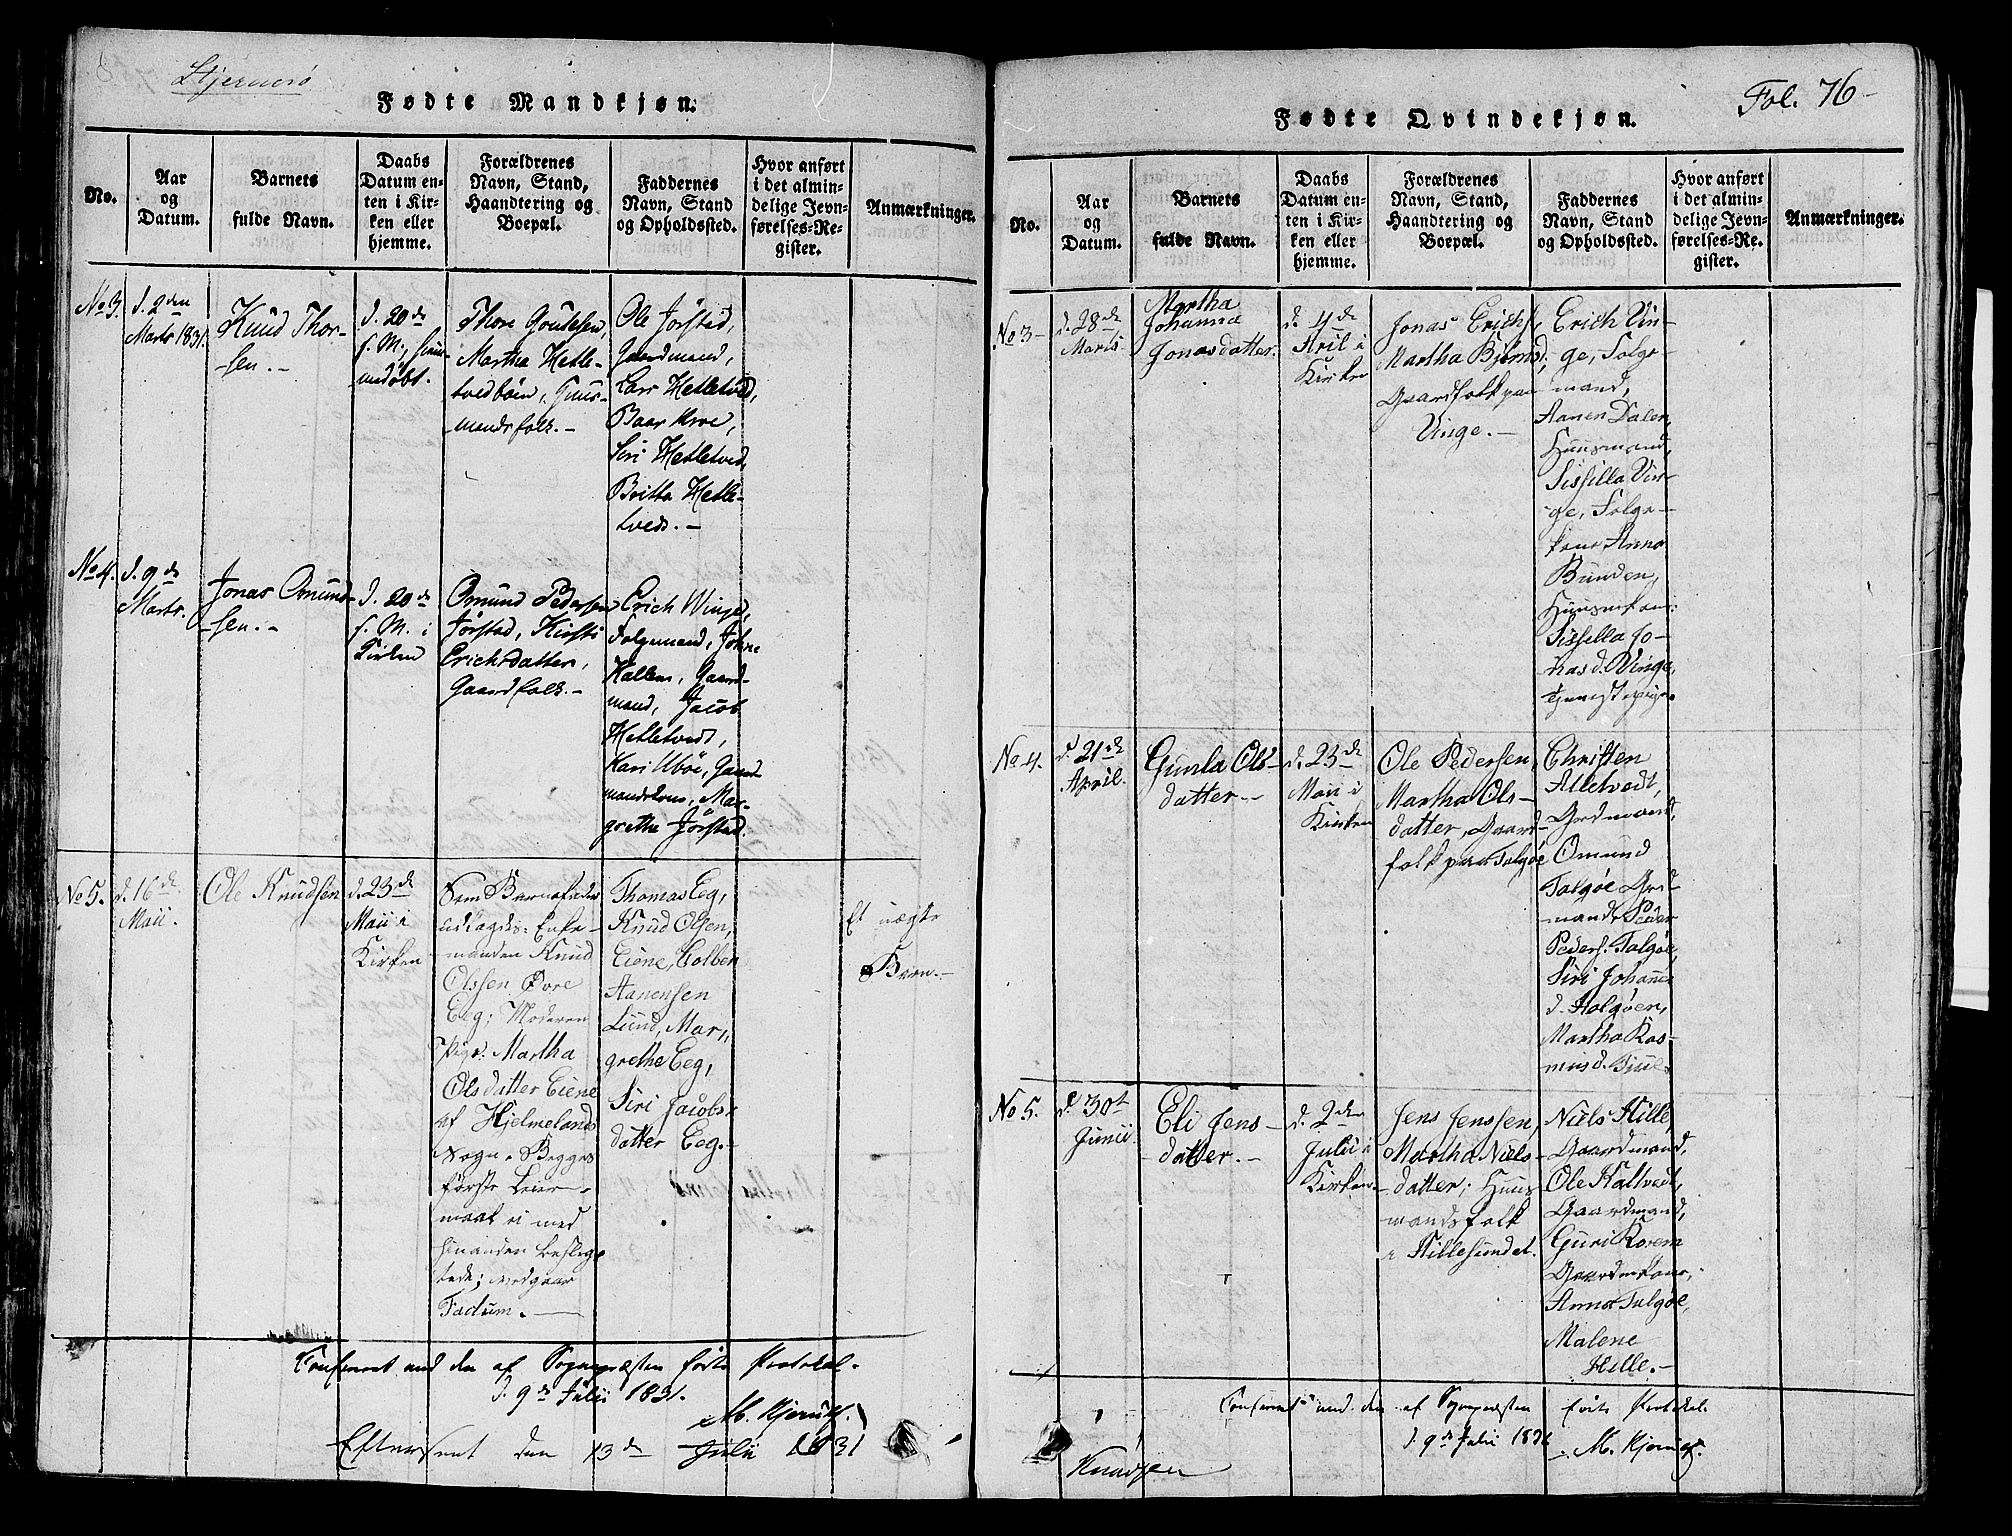 Stjernerö
Fødte Mandkjøn.
No.
Aar
og
Datum.
Barnets
fulde Navn.
Daabs
Datum en-
ten i Kir-
ken eller
hjemme.
Forældrenes
Navn, Stand,
Haandtering og
Boepæl.
Faddernes
Navn, Stand
og Opholdssted.
Hvor anført
i det almin-
delige Jevn-
førelses-Re-
gister.
Anmærkninger.
No 3.
d. 2den
Marts 1831.
Knud Thor-
sen.-
d. 20de
s. M.,
Thore
Martha Hetle-
tvedböen, Huus-
mandsfolk.-
Ole Jörstad,
Gaardmand,
Lars Hetletvedt,
Baar Kroe,
Siri Hetletved,
Britta Hetle-
tvedt.-
No 4.
d. 9de
Marts.
Jonas Omund-
-sen.-
d. 20de
s. M. i
Kirken
Omund Pedersen
Jörstad, Kirsti
Erichsdatter,
Gaardfolk.-
Erich Winge,
Folgemand, Johne
Hallem, Gaard-
mand, Jacob
Hetletvedt,
Kari Uböe, Gaard-
mandskone, Mar-
grethe Jörstad.
No 5.
d. 16de
Maii.
Ole Knudsen
d. 23de
Maii i
Kirken
Som Barnefader
udlagdes: Enke-
manden Knud
Olssen Øvre
Eeg; Moderen
Pige: Martha
Olsdatter Eiene
af Hjelmelands
Sogn. Begges
første Leier-
maal ei med
hinanden beslæg-
tede; vedgaar
Factum.-
Thomas Eeg,
Knud Olsen,
Eiene, Colben
Aanensen
Lund, Mar,
grethe Eeg,
Siri Jacobs-
datter Eeg.-
Et uægte
Barn.-
Confereret med den af Sognepræsten førte Protokol.
d. 9de Julii 1831.
M. Kjerulf.
Eftersent den 13de Julii 1831
Fol. 76-
Fødte Qvindekjøn.
No.
Aar
og
Datum.
Barnets
fulde Navn.
Daabs
Datum en-
ten i Kir-
ken eller
hjemme.
Forældrenes
Navn, Stand,
Haandtering og
Boepæl.
Faddernes
Navn, Stand
og Opholdssted.
Hvor anført
i det almin-
delige Jevn-
førelses-Re-
gister.
Anmærkninger.
No 3-
d. 28de
Marts
Martha
Johanna
Jonasdatter.
d. 4de
April i
Kirken
Jonas Erichs,
Martha Björnsd;
Gaardfolk paa
Vinge.-
Erich Vin-
ge, Folge-
mand,
Aanen Dalen,
Huusmand,
Sissella Vin-
ge, Folge-
kone Anna
Bunden,
Huusmkone:
Sissella Jo-
nasd. Vinge,
Tjenestepige.
No 4.
d. 21de
April.
Gunla Ols-
datter.-
d. 23de
Maii i
Kirken
Ole Pedersen,
Martha Ols-
datter, Gaard-
folk paa Talgöe
Christen
Alletvedt,
Grdmand,
Omund
Talgöe Grd-
mand, Peder
Peders: Talgöe,
Siri Johanne
d. Halgöen,
Martha Ras-
musd.
No 5.
d. 30t
Junii
Eli Jens-
datter.-
d. 2de
Julii i
Kirken.
Jens Jenssen,
Martha Niels-
datter; Huus-
mandsfolk
i Hillesundet.
Niels Hille,
Gaardmand,
Ole Kaltvedt,
Gaardmand,
Guri
Gaardmkone,
Anna Talgöe,
Malene
Hille.-
Confereret med den af Sognepræsten førte Protokol.
d. 9de Julii 1831
M. Kjerulf.
Knudsen